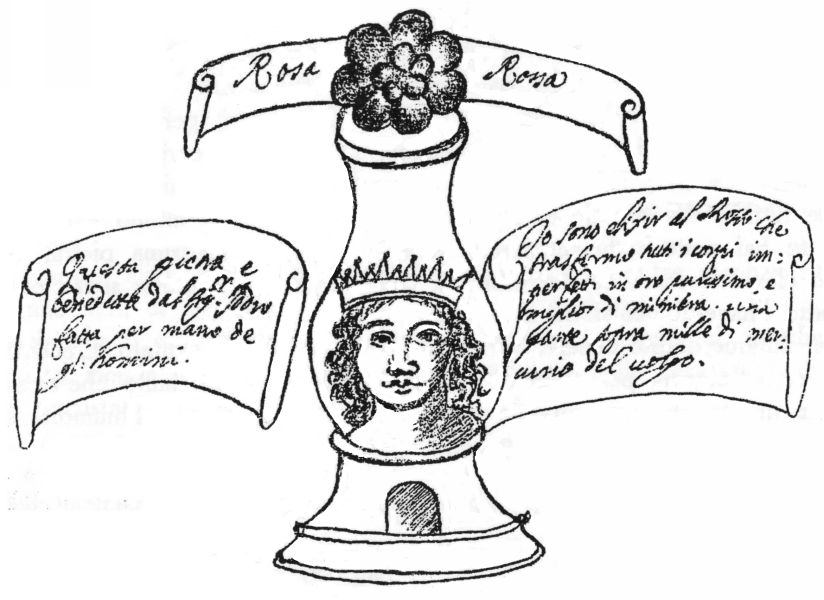 Rosa Rossa
Questa pietra e
benedetta dal Sig.r Iddio
fatta per mano de
gl. homini.
Io sono elixir al Rosso che
trasformo tutti i corpi im-
perfetti in oro purissimo, e
miglior di minera. una
parte sopra mille di mer-
curio del volgo.